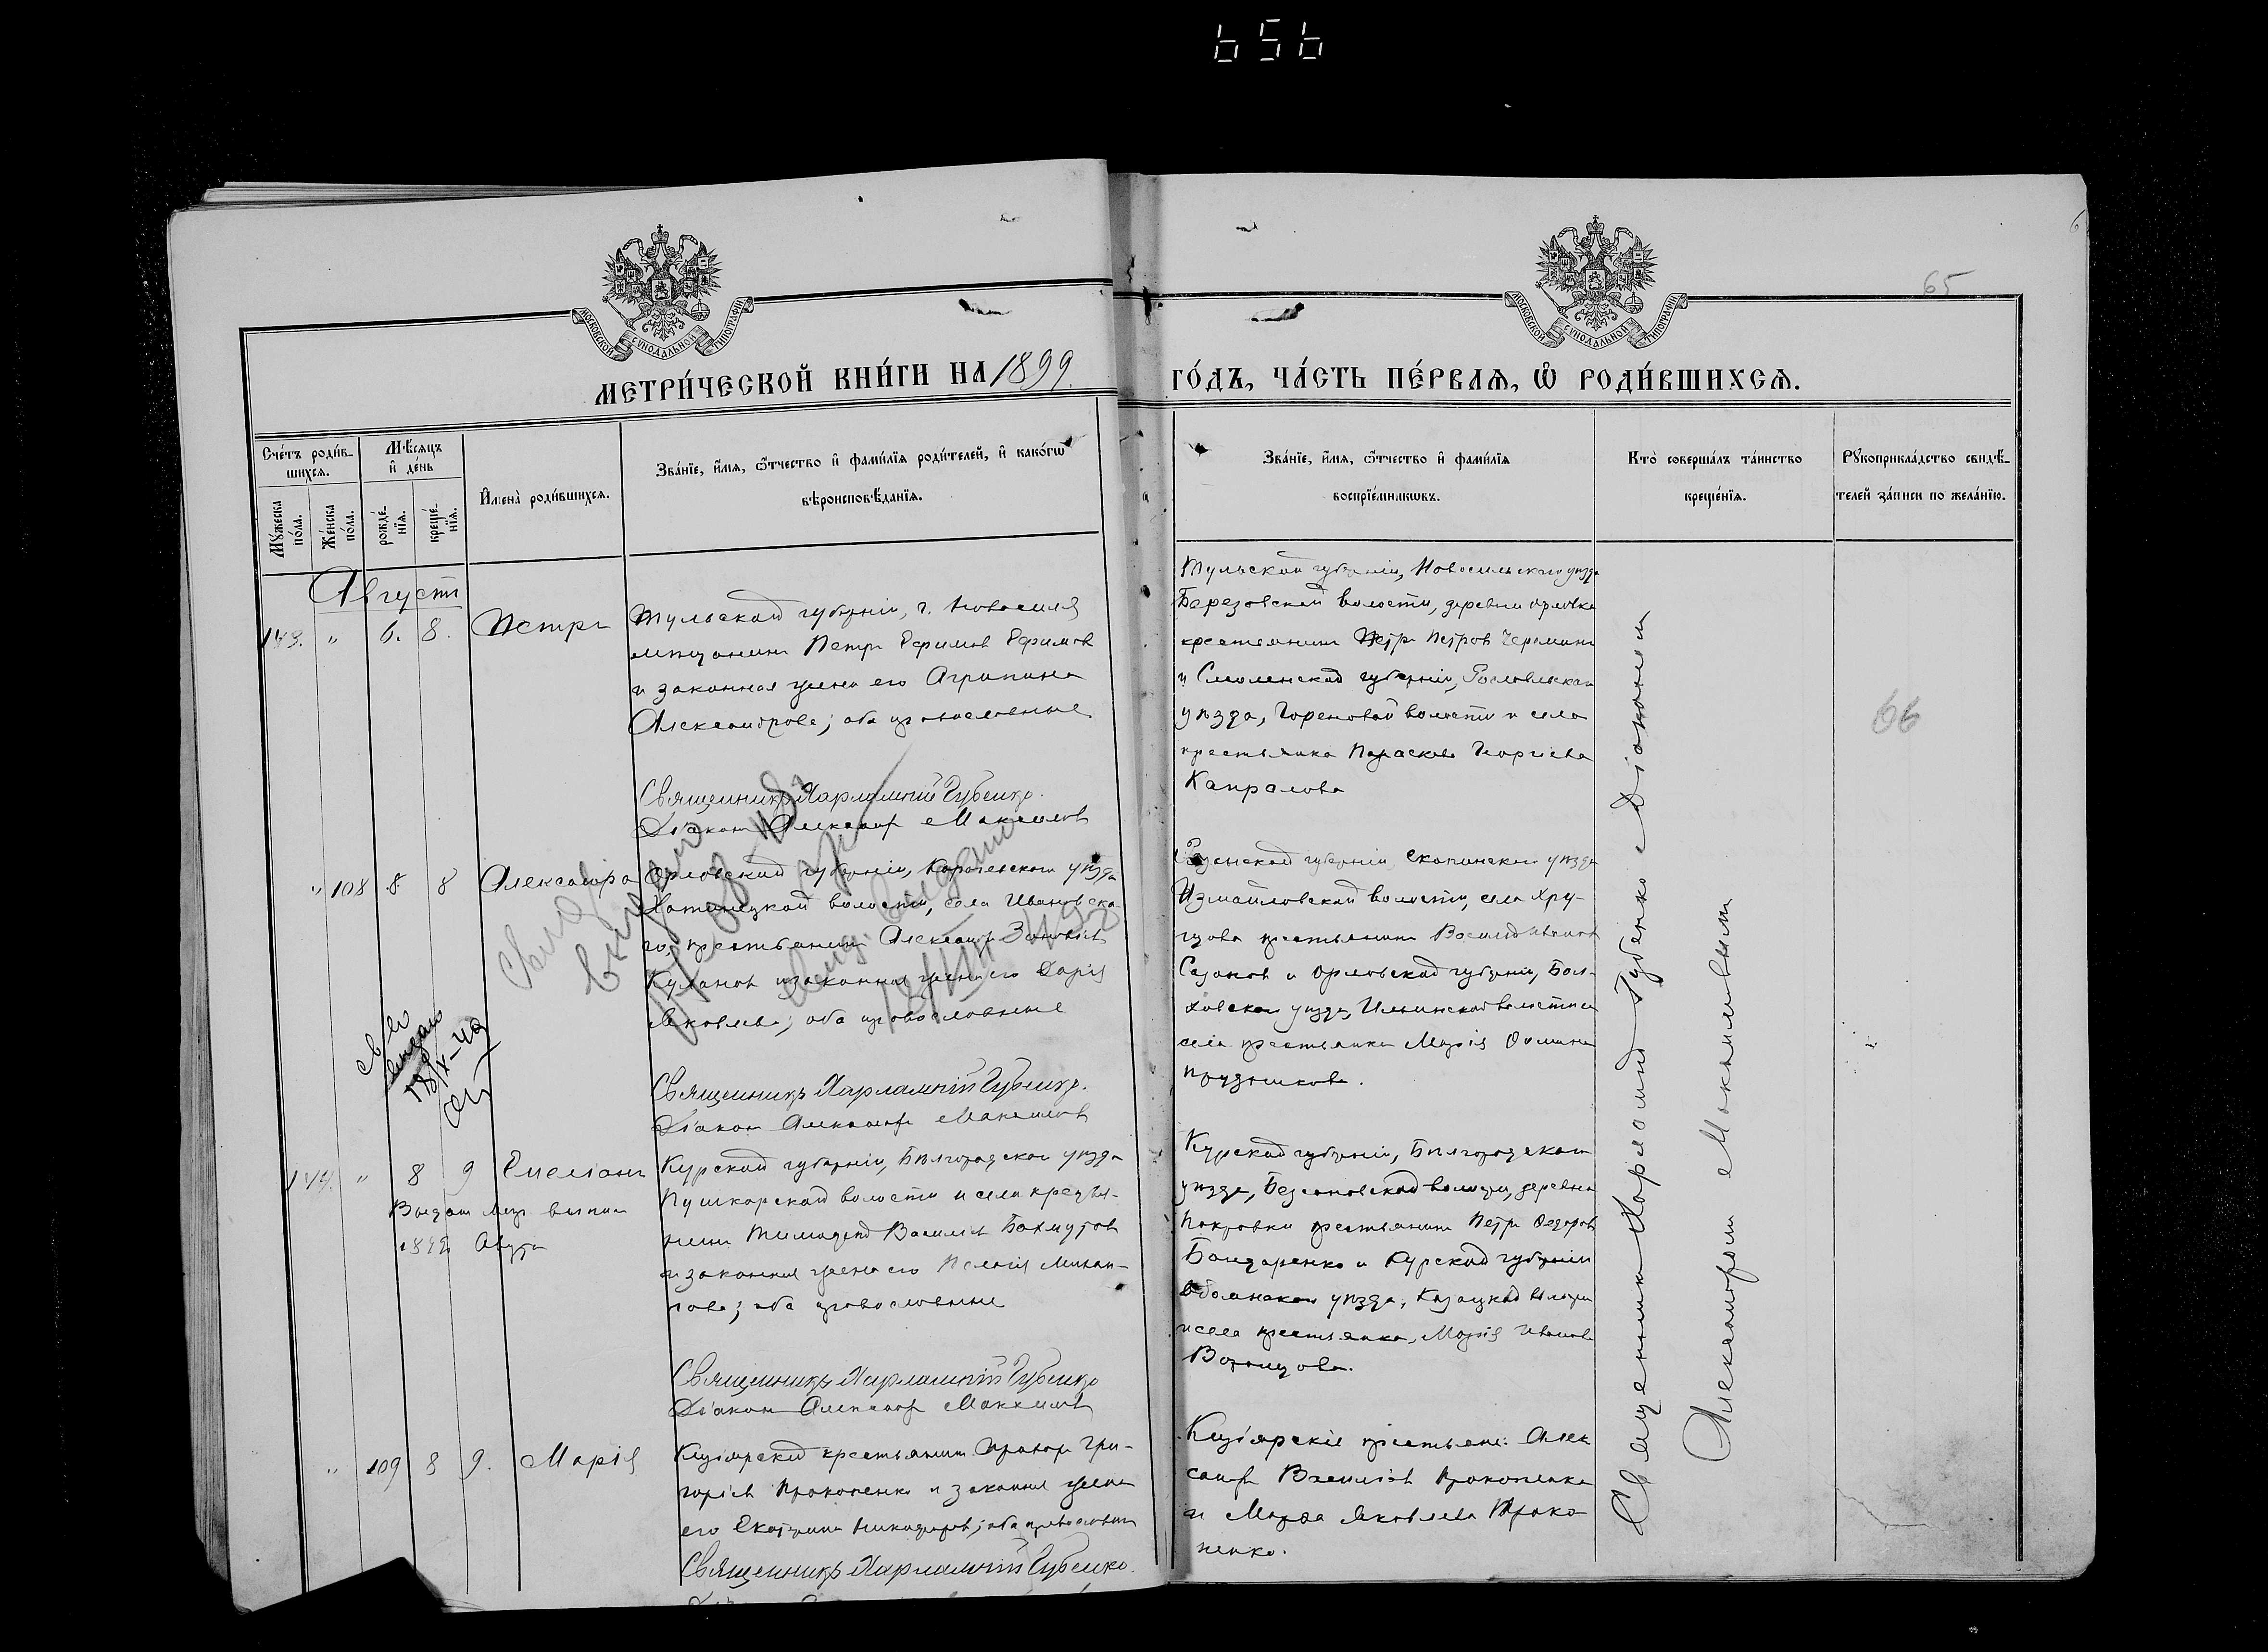 656
65
МОСКОВСКОЙ СѴНОДАЛЬНОЙ ТИПОГРАФІИ
МОСКОВСКОЙ СѴНОДАЛЬНОЙ ТИПОГРАФІИ
МЕТРИ́ЧЕСКОЙ КНИ́ГИ НА 1899
ГО́ДЪ, ЧА́СТЬ ПЕ́РВАѦ, Ѽ РОДИ́ВШИХСѦ.
Сче́тъ роди́в-
шихсѧ.
Мꙋ́жеска по́ла.
Же́нска по́ла.
Мѣ́сѧцъ
и҆ де́нь
рожде́-
нїѧ.
креще́-
нїѧ.
И҆мена̀ роди́вшихсѧ.
Зва́нїе, и҆́мѧ, ѻ҆́тчество и҆ фами́лїѧ роди́телей, и҆ како́гѡ
вѣроисповѣ́данїѧ.
Зва́нїе, и҆́мѧ, ѻ҆́тчество и҆ фами́лїѧ
воспрїе́мникѡвъ.
Кто̀ соверша́лъ та́инство
креще́нїѧ.
Рꙋкоприкла́дство свидѣ́-
телей за́писи по жела́нїю.
Августъ
143. " 6. 8. Петръ
Тульской губерніи, г. Новосиля
мѣщанинъ Петръ Ефимовъ Ефимовъ
и законная жена его Агрипина
Александрова; оба православные
Священникъ Харлампій Губенко.
Діаконъ Александръ Максимовъ
Тульской губерніи, Новосильскаго уѣзда
Березовской волости, деревни
крестьянинъ Петръ Петровъ
и Смоленской губерніи, Рославльскаго
уѣзда, Гореновой волости и села
крестьянка Параскева Георгіева
Капралова
66
" 108 8 8 Александра
Орловской губерніи, Карачевскаго уѣзда
Хотинецкой волости, села Ивановска-
го, крестьянинъ Александръ Зиновіевъ
Кулаковъ и законная жена его Дарія
Яковлева; оба православные
Священникъ Харлампій Губенко.
Діаконъ Александръ Максимовъ
Рязанской губерніи Скопинскаго уѣзда
Измайловской волости, села
крестьянинъ Василій
Сазоновъ и Орловской губерніи, Бол-
ховскаго уѣзда, Ильинской волости и
села крестьянка Марія Фомина
Прудникова.
144. " 8 9 Емеліанъ
1899 Августа
Курской губерніи, Бѣлгородскаго уѣзда
Пушкарской волости и села крестья-
нинъ Тимофей Василіевъ Бахмутовъ
и законная жена его Пелагія
оба православные
Священникъ Харлампій Губенко
Діаконъ Александръ Максимовъ
Курской губерніи, Бѣлгородскаго
уѣзда, Безсоновской волости, деревни
Покровки крестьянинъ Петръ Федоровъ
Бондаренко и Курской губерніи
Обоянскаго уѣзда, Казацкой волости
и села крестьянка, Марія Иванова
" 109 8 9. Марія
крестьянинъ Гри-
горіевъ Прокопенко и законная жена
его Екатерина Никифорова; оба православные
Священникъ Харлампій Губенко.
крестьяне: Алек-
сандръ Василіевъ Прокопенко
и Марѳа Яковлева Проко-
пенко.
Священникъ Харлампій Губенко съ Діакономъ
Александромъ Максимовымъ